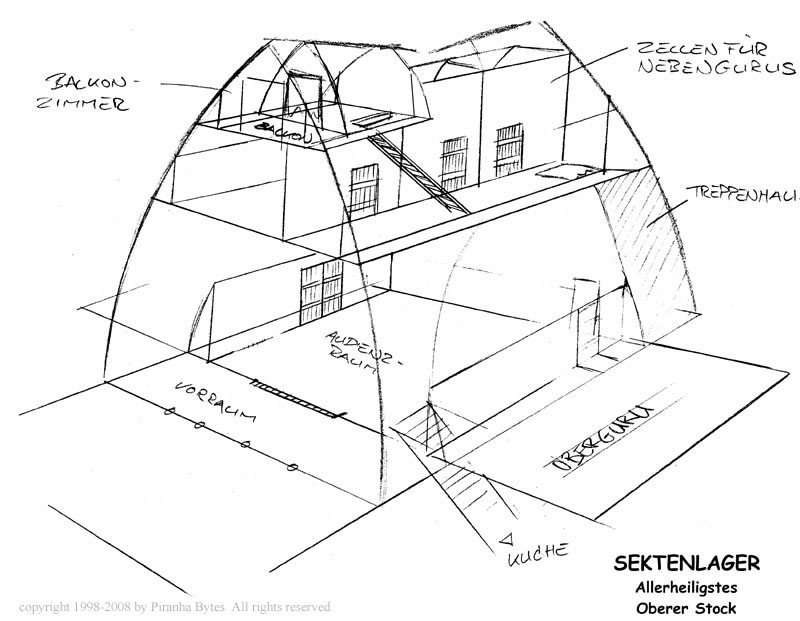 ZELLEN FÜR
NEBENGURUS
BALKON-
ZIMMER
BALKON
TREPPENHAU
AUDENZ-
RAUM
VORRAUM
OBERGURU
KÜCHE
SEKTENLAGER
Allerheiligstes
Oberer Stock
copyright 1998-2008 by Piranha Bytes All rights reserved